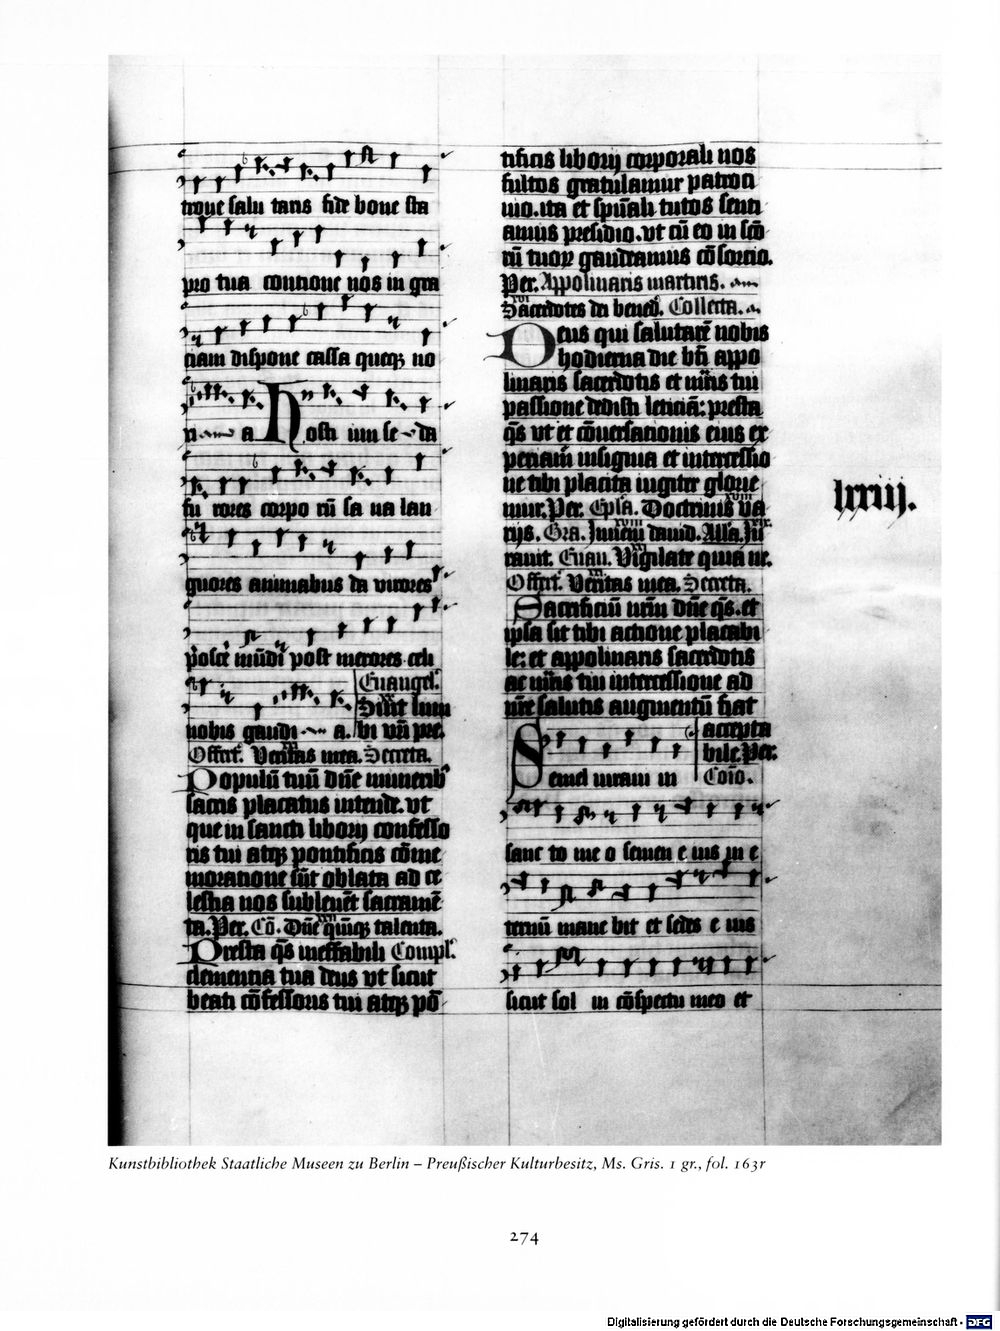 trone salu tans fide bone sta
pro tua cōntione nos in gra
ciam dispone cassa quecꝫ no
xi a Hosti um se da
fu rores corpo rū sa na lan
guores animabus da virores
posce mūdi post merores celi
nobis gaudi a. Euangel'.
Sīnt lum
bi vrī pre.
Offert'. Veritas mea. Secreta.
Populū tuū dn̄e munerib'
sacris placatus intende. vt
que in sancti liborij confesso
ris tui atqꝫ pontificis cōme
moratione sūt oblata ad ce
lestia nos subleuēt sacramē
ta. Per. Cō. Dn̄e qui̅qꝫ talenta.
Presta qs̄ ineffabili Compl'.
clementia tua deus vt sicut
beati cōfessoris tui atqꝫ pō
tificis liborij corporali nos
fultos gratulamur patroci
nio. ita et spūali tutos senti
amus presidio. vt cū eo in scō
rū tuoꝝ gaudeamus cōsorcio.
Per. Appolinaris martiris.
Sacerdotes dei bened'. Collecta.
Deus qui salutarē nobis
hodierna die btī̄ appo
linaris sacerdotis et mr̄is tui
passione dedisti leticiā: presta
qs̄ vt et cōuersationis eius ex
periam̄ insignia et intercessio
ne tibi placita iugiter glorie
mur. Per. Epl'a. Doctrinis va
rijs. Gra. Inueni dauid. All'a. Iu
rauit. Euan. Vigilate quia ne.
Offert'. Veritas mea. Secreta.
Sacrificiū nr̄m dn̄e qs̄. et
ipsa sit tibi actione placabi
le: et appolinaris sacerdotis
ac mr̄is tui intercessione ad
nr̄e salutis augmentū fiat
accepta
bile. Per.
Semel iuraui in Cōio.
sanc to me o semen e ius in e
ternū mane bit et sedes e ius
sicut sol in cōspectu meo et
lxxiiij.
Kunstbibliothek Staatliche Museen zu Berlin – Preußischer Kulturbesitz, Ms. Gris. 1 gr., fol. 163r
274
Digitalisierung gefördert durch die Deutsche Forschungsgemeinschaft - DFG